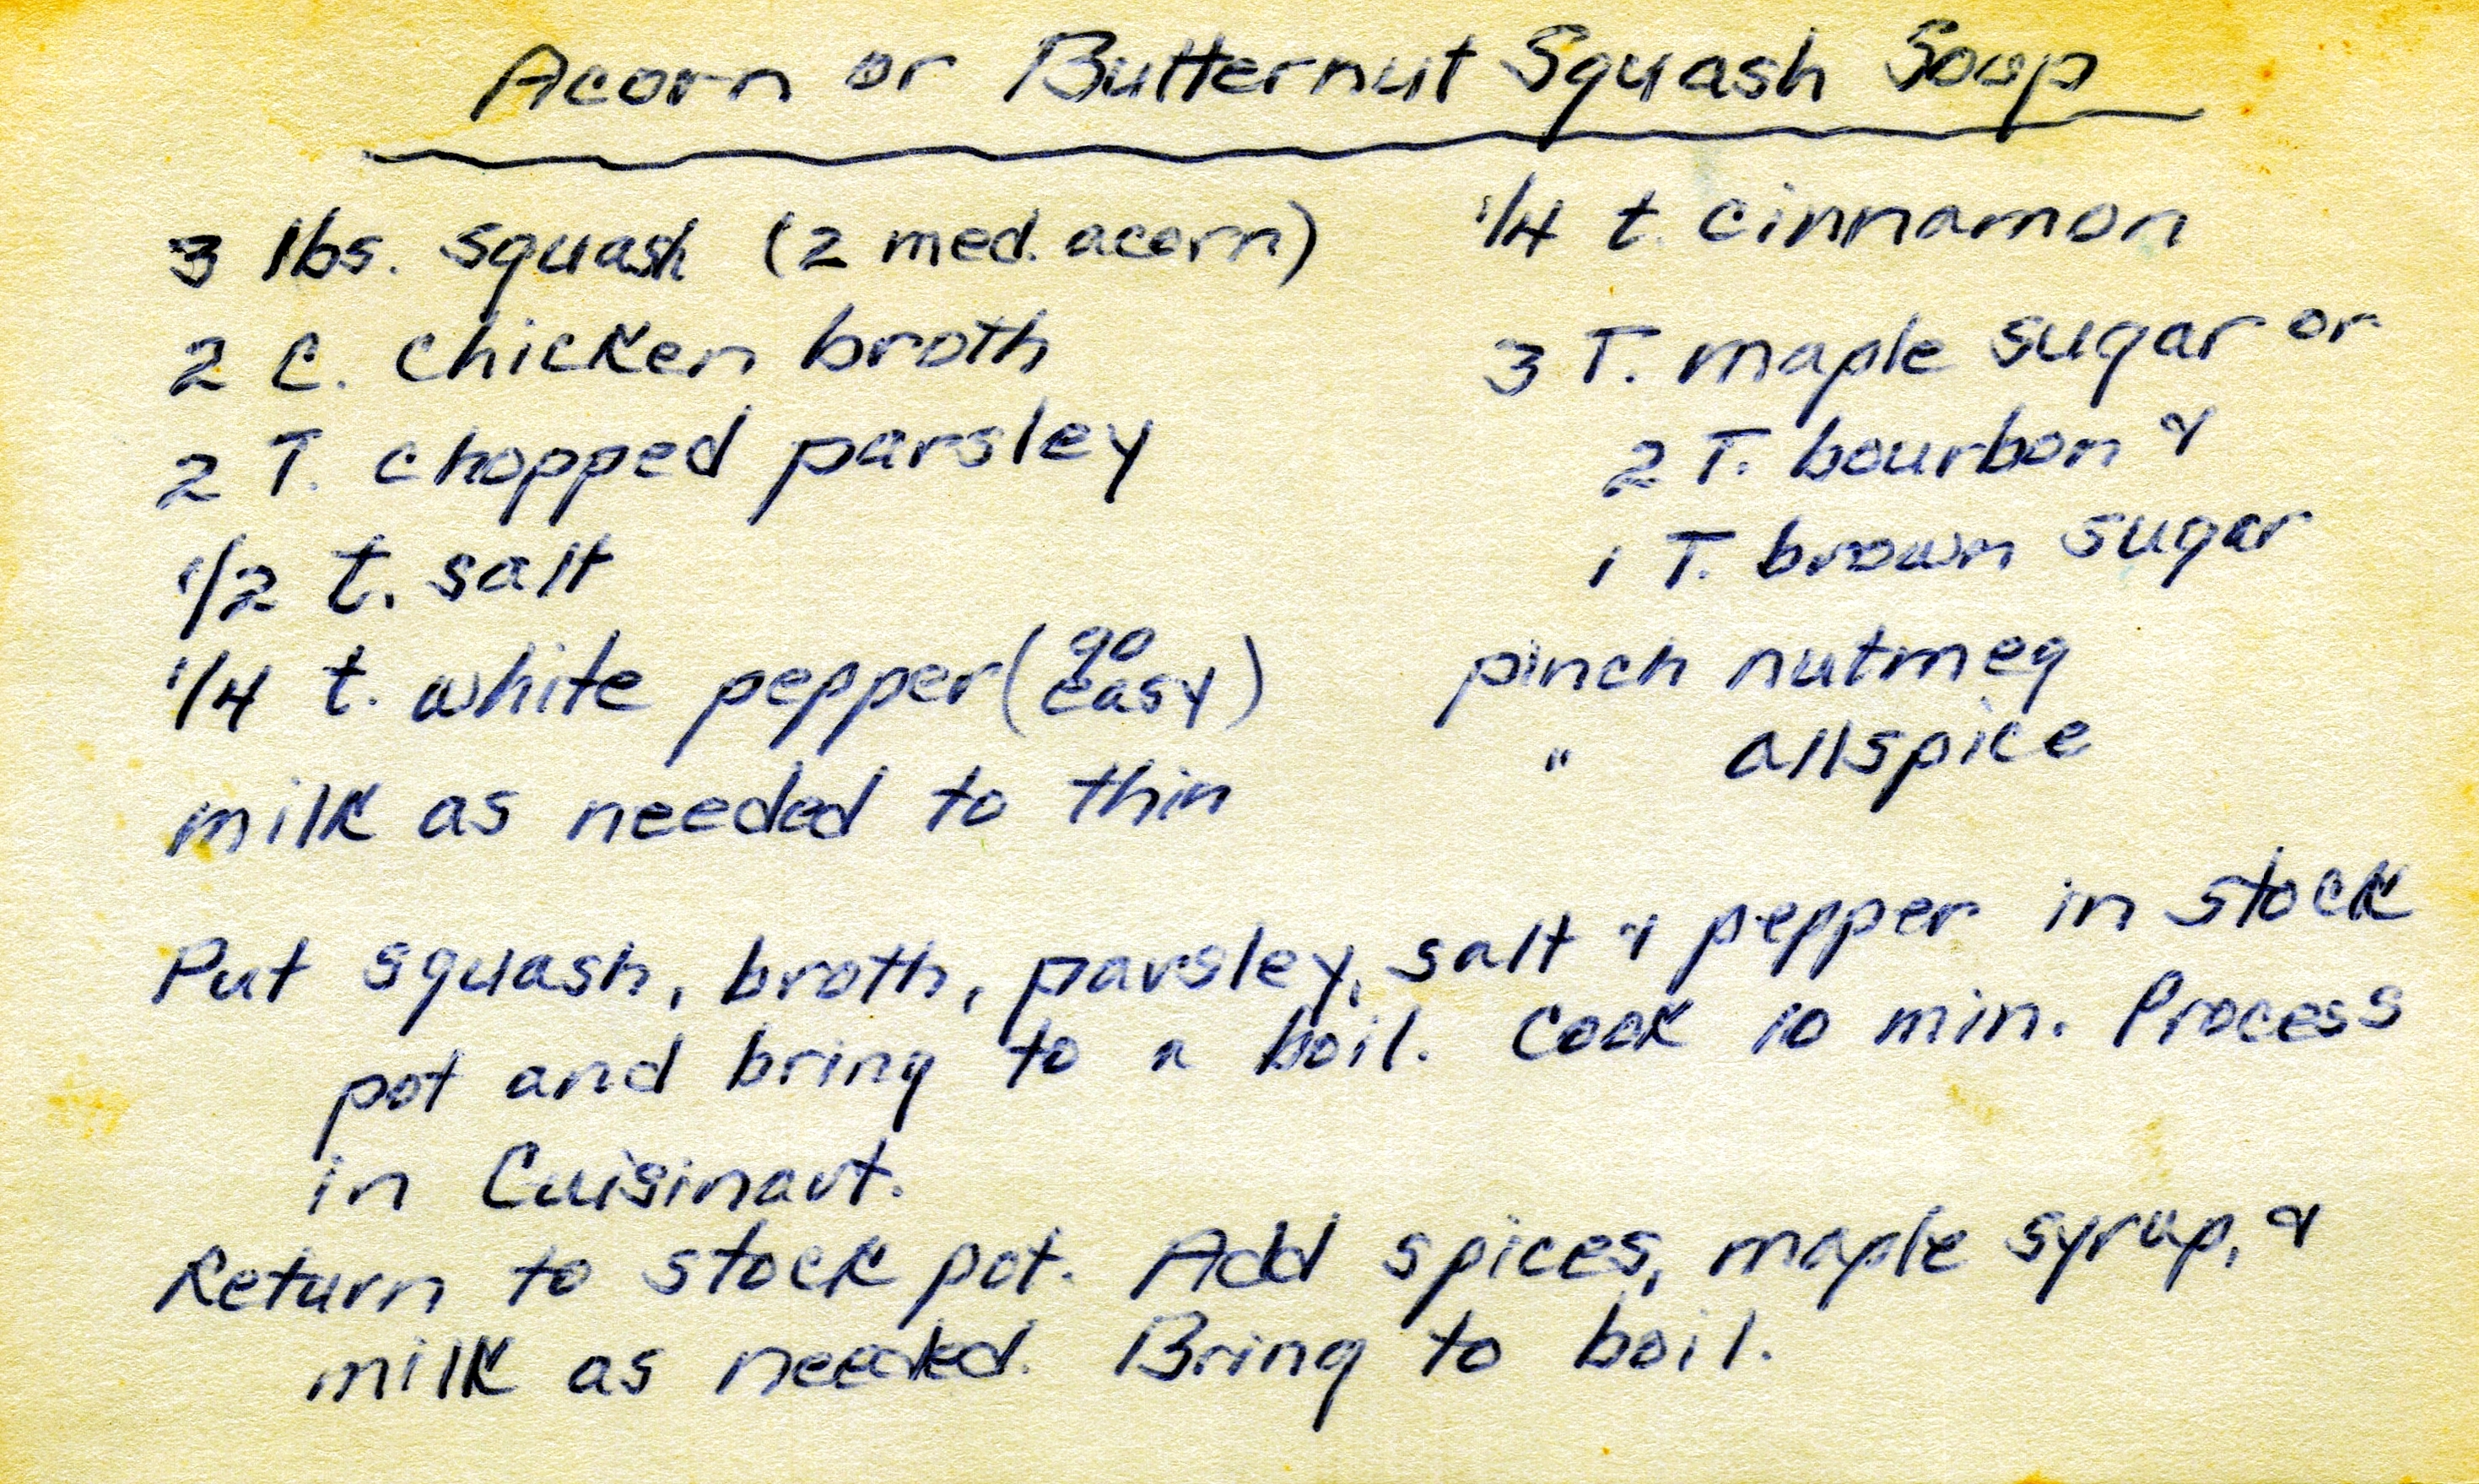 Acorn or Butternut Squash Soup
3 lbs. squash (2 med. acorn)
2 C. chicken broth
2 T. chopped parsley
1/2 t. salt
1/4 t. white pepper (go easy)
milk as needed to thin
1/4 t. cinnamon
3 T. maple sugar or
2 T. bourbon &
1 T. brown sugar
pinch nutmeg
" allspice
Put squash, broth, parsley, salt & pepper in stock
pot and bring to a boil. Cook 10 min. Process
in Cuisinart.
Return to stock pot. Add spices, maple syrup, &
milk as needed. Bring to boil.